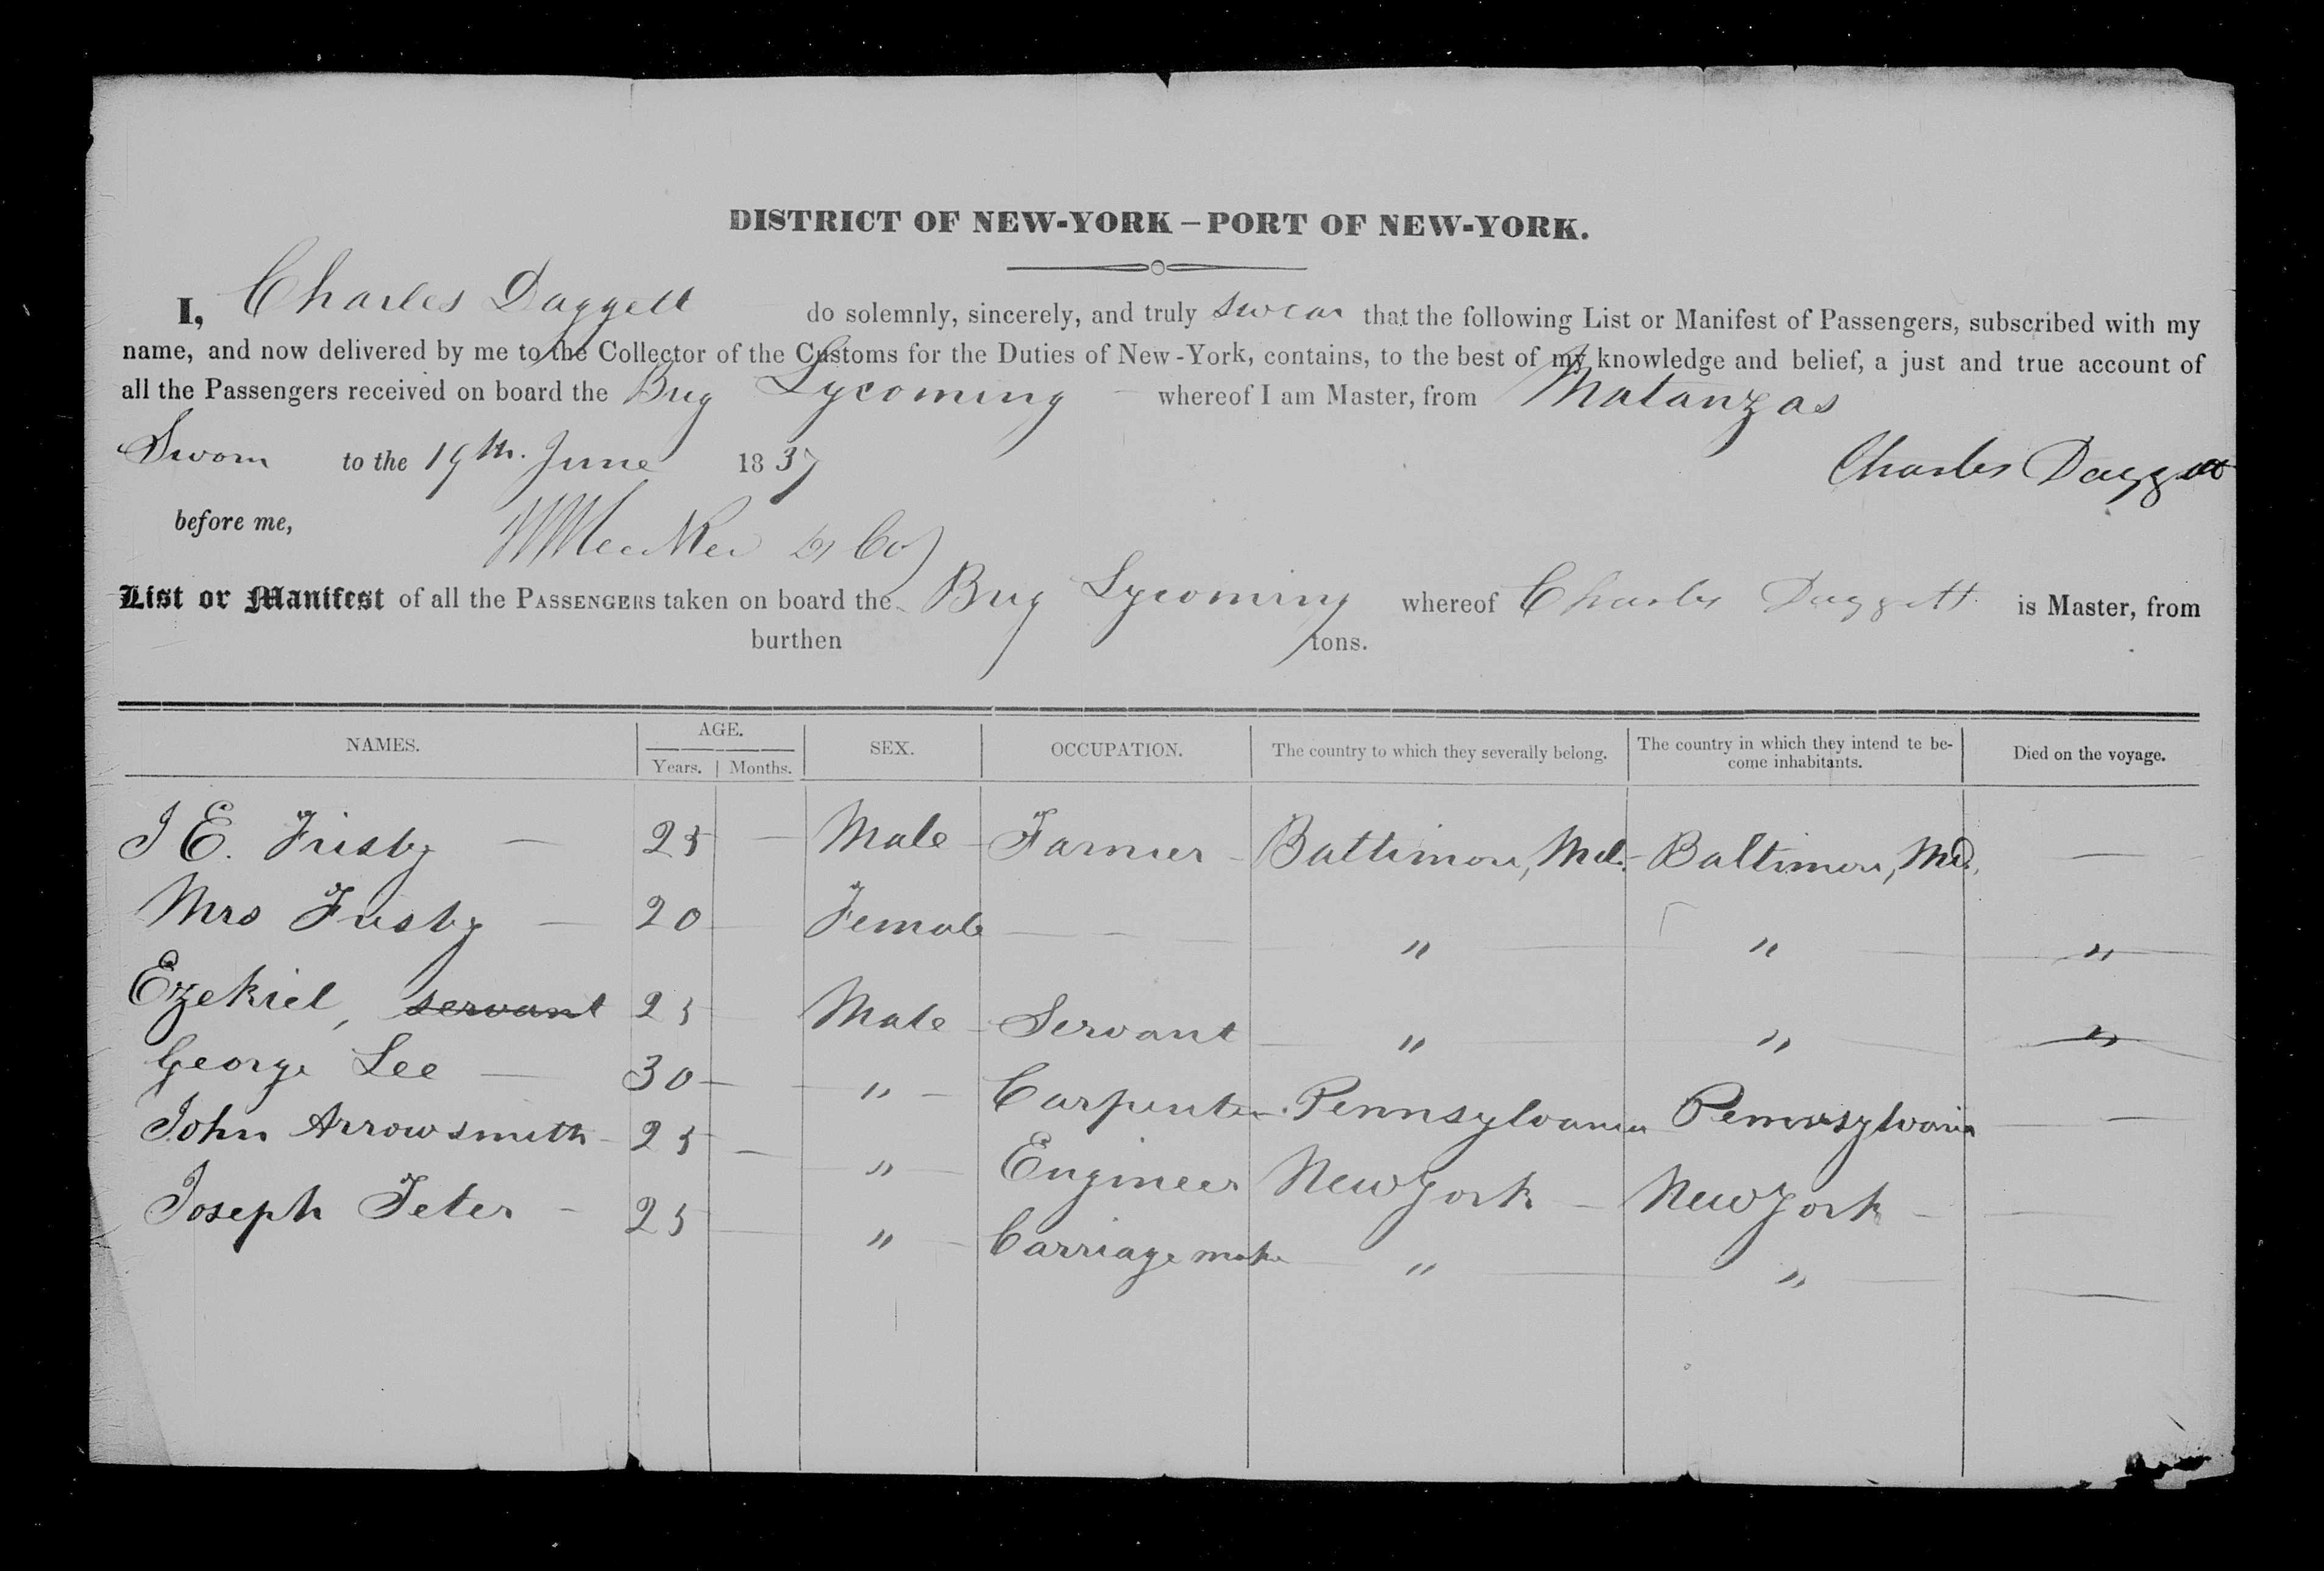 DISTRICT OF NEW-YORK – PORT OF NEW-YORK.
I, Charles Daggett do solemnly, sincerely, and truly swear that the following List or Manifest of Passengers, subscribed with my
name, and now delivered by me to the Collector of the Customs for the Duties of New-York, contains, to the best of my knowledge and belief, a just and true account of
all the Passengers received on board the Brig Lycoming whereof I am Master, from Matanzas
Sworn to the 19th. June 1837
Charles Daggett
before me,
List or Manifest of all the PASSENGERS taken on board the Brig Lycoming whereof Charles Daggett is Master, from
burthen tons.
NAMES. AGE. SEX. OCCUPATION. The country to which they severally belong. The country in which they intend to be- Died on the voyage.
Years. Months. come inhabitants.
J E. Frisby — 25 — Male - Farmer - Baltimore, Md. - Baltimore, Md. —
Mrs Frisby — 20 — Female — " — " — "
Ezekiel, servant 25 — Male - Servant — " — " — "
George Lee — 30 — " — Carpenter - Pennsylvania Pennsylvania —
John Arrowsmith - 25 — " — Engineer New York - New York - —
Joseph Jeter - 25 — " — Carriage make — " — " — —